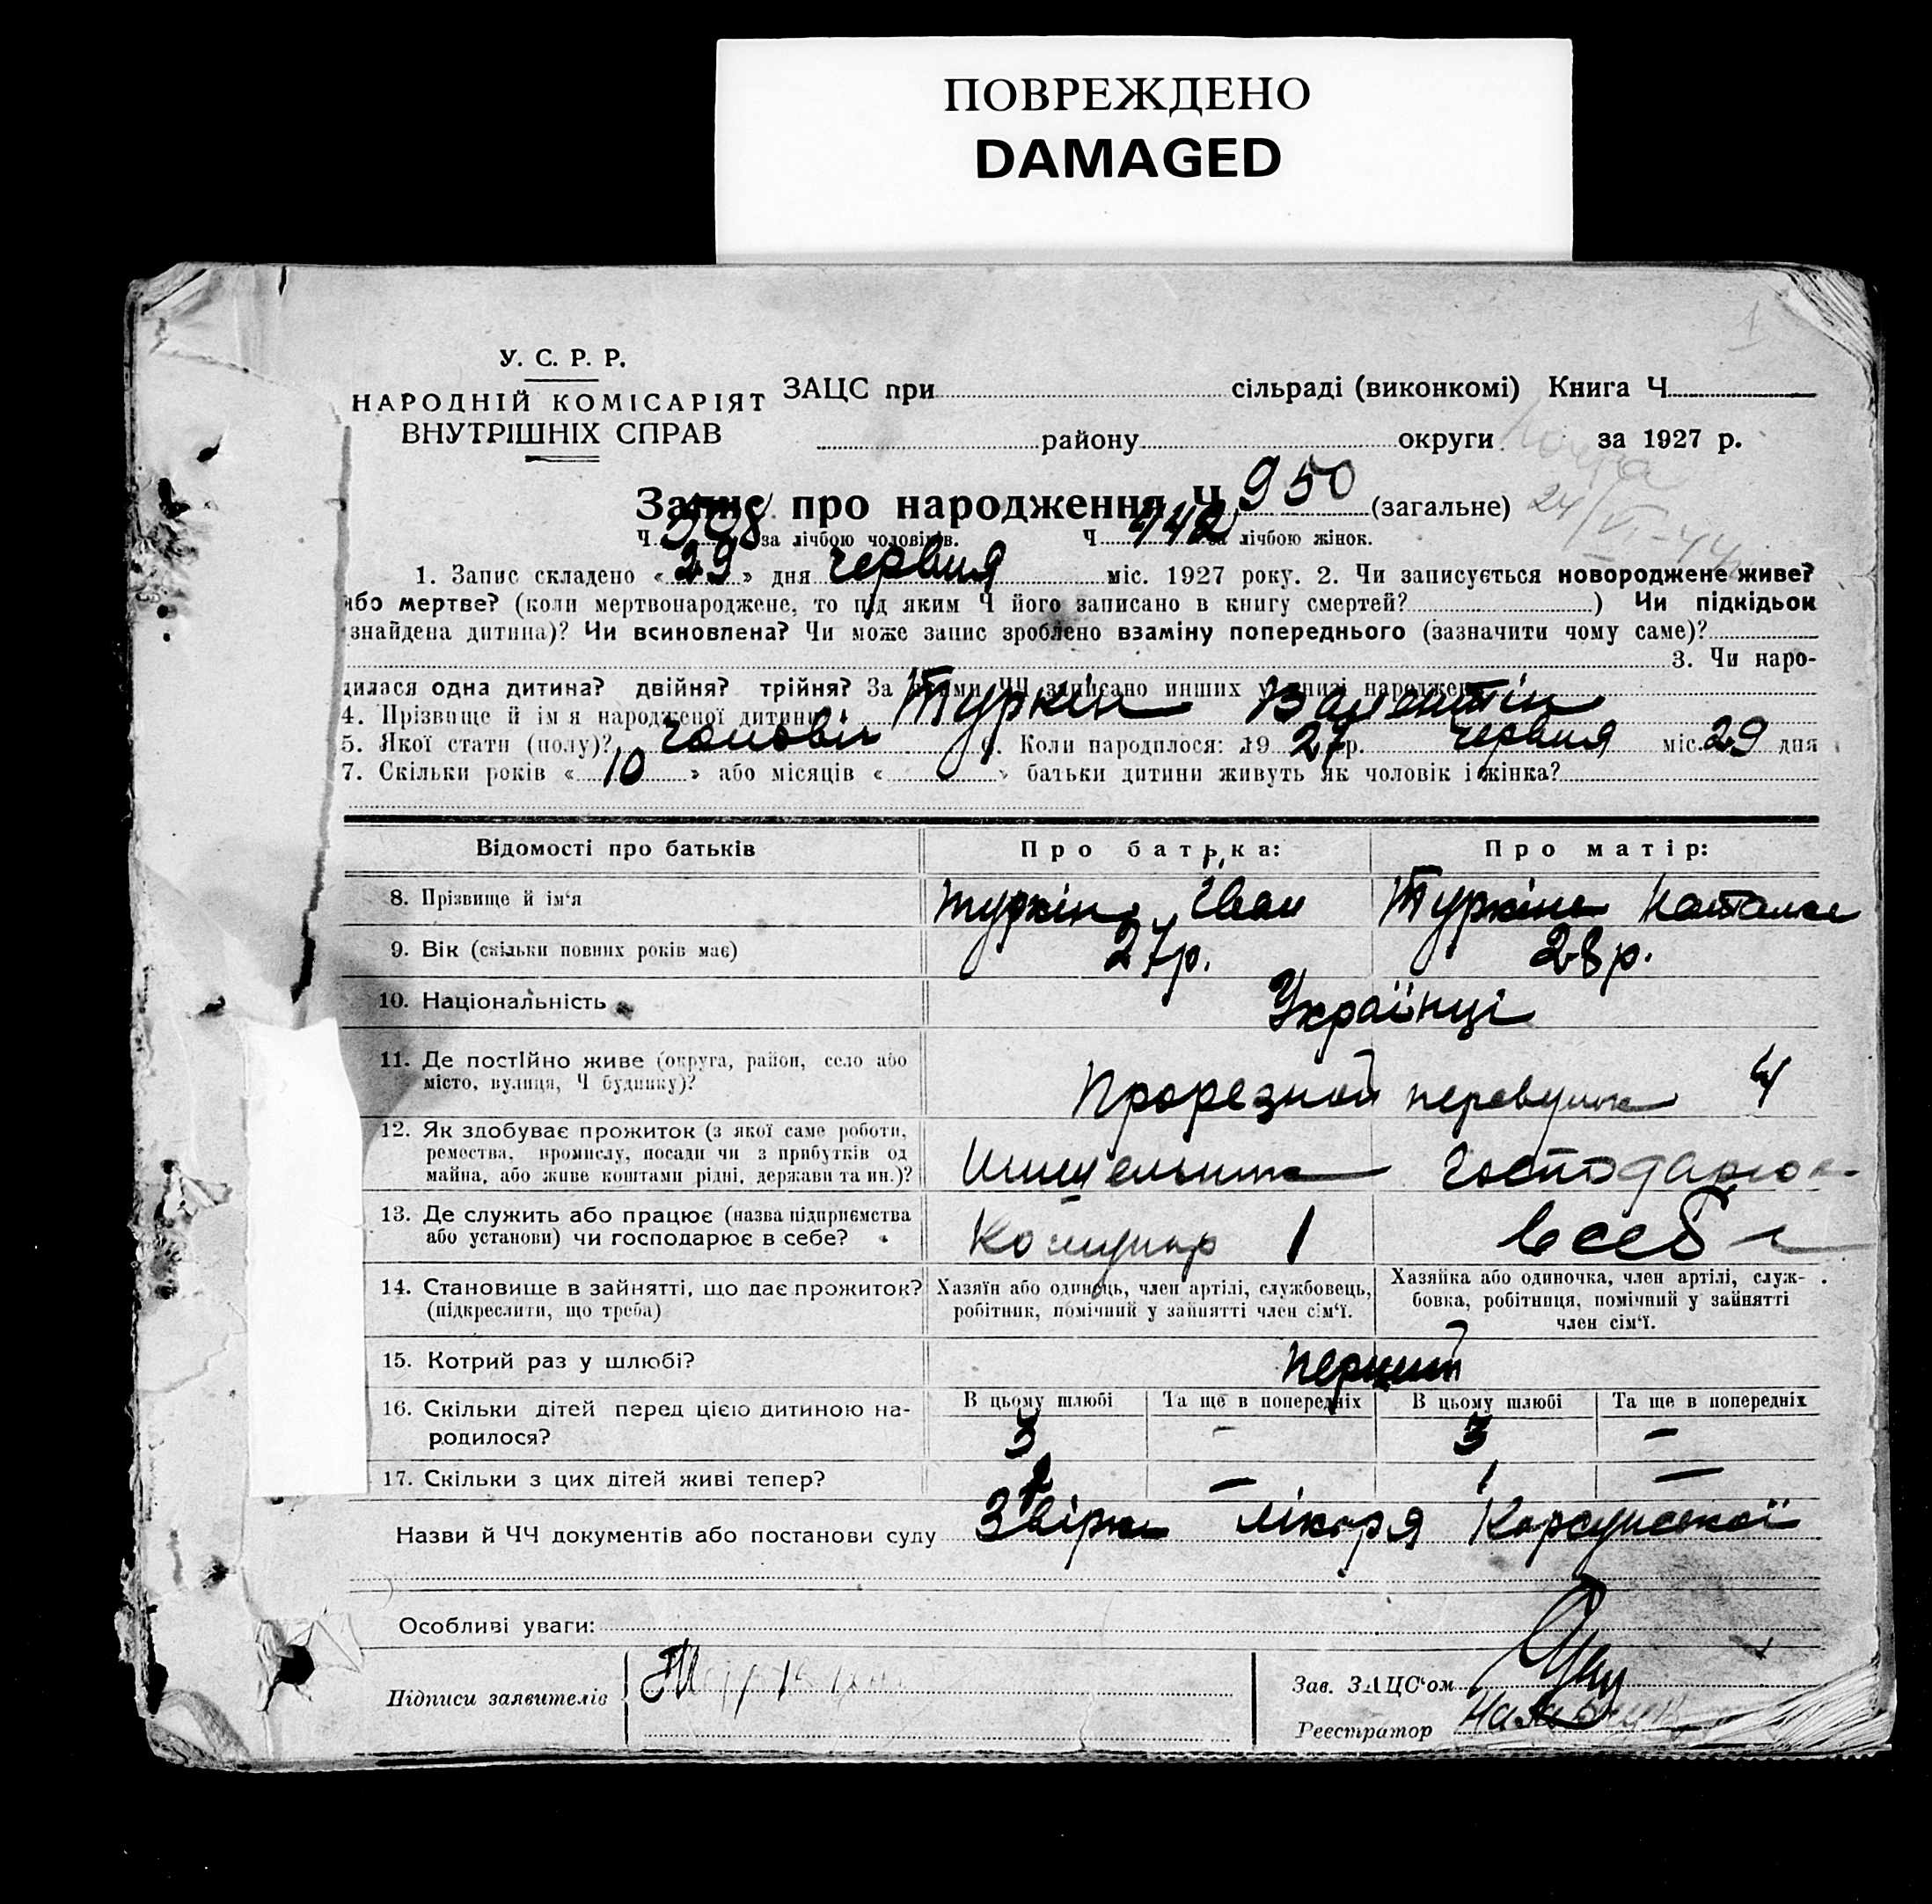 ПОВРЕЖДЕНО
DAMAGED
1
У. С. Р. Р.
НАРОДНІЙ КОМІСАРІЯТ
ВНУТРІШНІХ СПРАВ
ЗАЦС при сільраді (виконкомі) Книга Ч.
району округи за 1927 р.
Запис про народження Ч 950 (загальне)
24/VI-44
Ч 508 за лічбою чоловіків. Ч 442 за лічбою жінок.
1. Запис складено « 29 » дня червня міс. 1927 року. 2. Чи записується новороджене живе?
або мертве? (коли мертвонароджене, то під яким Ч його записано в книгу смертей? ) Чи підкідьок
знайдена дитина)? Чи всиновлена? Чи може запис зроблено взаміну попереднього (зазначити чому саме)?
3. Чи наро-
дилася одна дитина? двійня? трійня? За якими ЧЧ записано инших у книзі народжень
4. Прізвище й ім'я народженої дитини: Туркін Валентін
5. Якої статі (полу)? чоловіч 6. Коли народилося: 1927 р. червня міс. 29 дня
7. Скільки років « 10 » або місяців « » батьки дитини живуть як чоловік і жінка?
Відомості про батьків Про батька: Про матір:
8. Прізвище й ім'я Туркін Іван Туркіна Наталка
9. Вік (скільки повних років має) 27 р. 28 р.
10. Національність Українці
11. Де постійно живе (округа, район, село або
місто, вулиця, Ч будинку)? Прорезной переулок 4
12. Як здобуває прожиток (з якої саме роботи,
ремества, промислу, посади чи з прибутків од
майна, або живе коштами рідні, держави та ин.)? господарює
13. Де служить або працює (назва підприємства
або установи) чи господарює в себе? 1 в себе
14. Становище в зайнятті, що дає прожиток?
(підкреслити, що треба)
Хазяїн або одинець, член артілі, службовець,
робітник, помічний у зайнятті член сім'ї.
Хазяйка або одиночка, член артілі, служ-
бовка, робітниця, помічний у зайнятті
член сім'ї.
15. Котрий раз у шлюбі? перший
16. Скільки дітей перед цією дитиною на-
родилося?
В цьому шлюбі Та ще в попередніх В цьому шлюбі Та ще в попередніх
3 - 3 -
17. Скільки з цих дітей живі тепер? 1 - 1 -
Назви й ЧЧ документів або постанови суду Звірка лікоря Корсунської
Особливі уваги:
Підписи заявителів
Зав. ЗАЦС'ом
Реєстратор